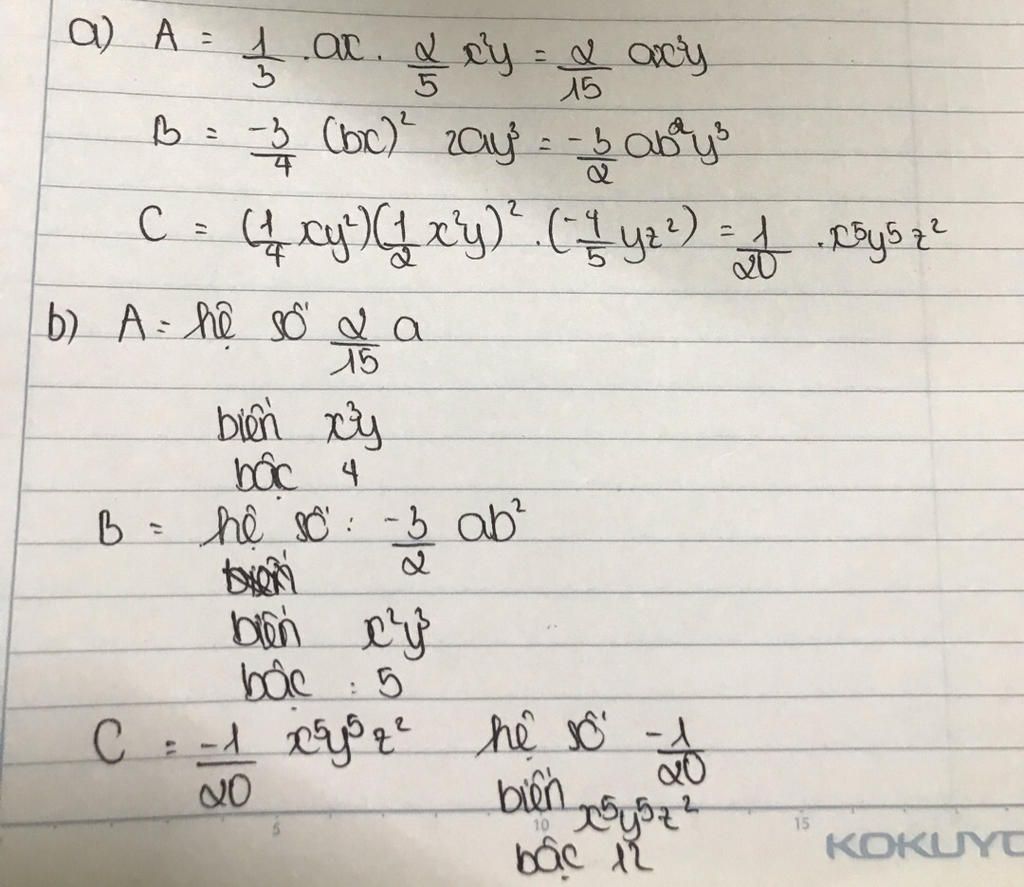 a) A = 1/3 . ax . 2/5 x²y = 2/15 ax³y
B = -3/4 (bx)² 2ay³ = -3/2 ab²y³
C = (1/4 xy²)(1/2 x²y)² . (-4/5 yz²) = 1/20 . x⁵y⁵z²
b) A = hệ số 2/15 a
biến x³y
bậc 4
B = hệ số : -3/2 ab²
biến
biến x²y³
bậc : 5
C = -1/20 x⁵y⁵z² hệ số -1/20
biến x⁵y⁵z²
bậc 12
5 10 15
KOKUYO